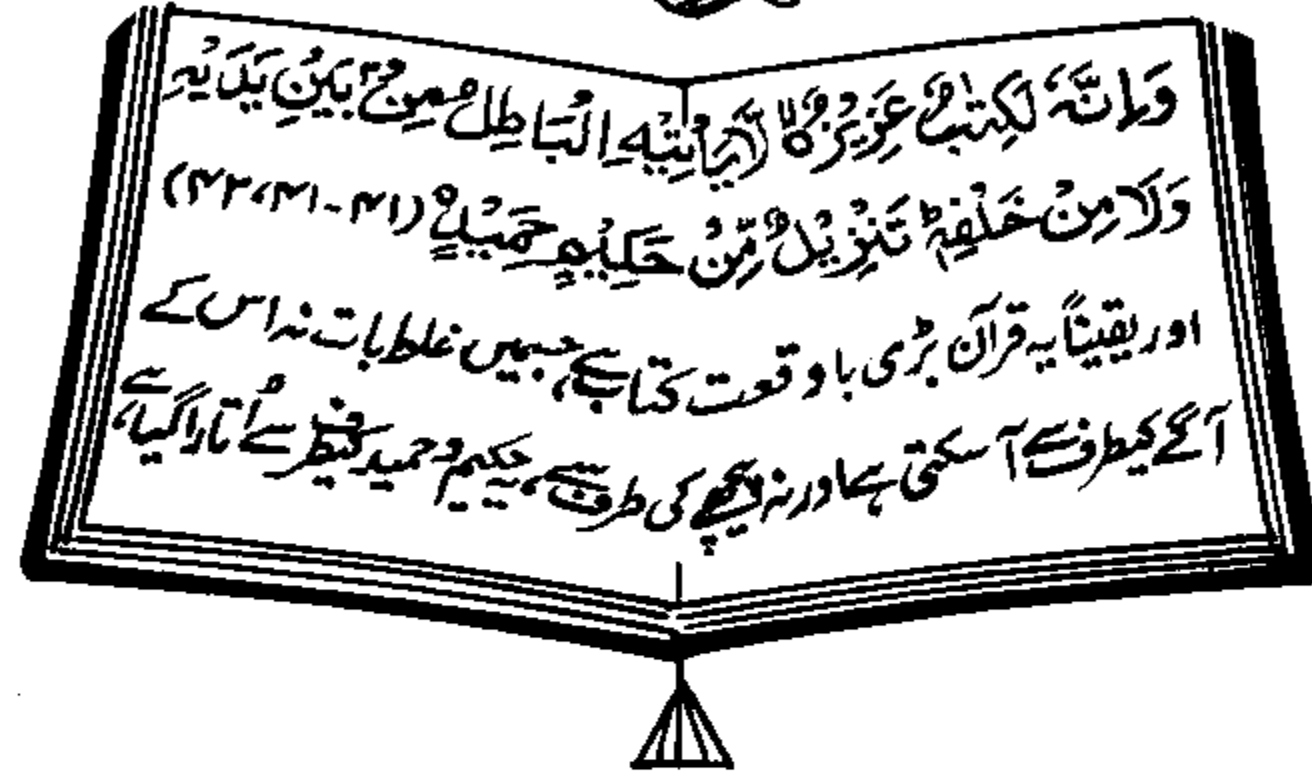 وَاِنَّہٗ لَکِتٰبٌ عَزِیْزٌ لَّا یَاْتِیْہِ الْبَاطِلُ مِنْۢ بَیْنِ یَدَیْہِ
وَلَا مِنْ خَلْفِہٖؕ تَنْزِیْلٌ مِّنْ حَکِیْمٍ حَمِیْدٍ (۴۱-۴۱،۴۲)
اور یقیناً یہ قرآن بڑی با وقعت کتاب ہے، جسمیں غلط بات نہ اس کے
آگے کیطرف سے آ سکتی ہے اور نہ پیچھے کی طرف سے، حکیم و حمید کیطرف سے اُتارا گیا ہے،